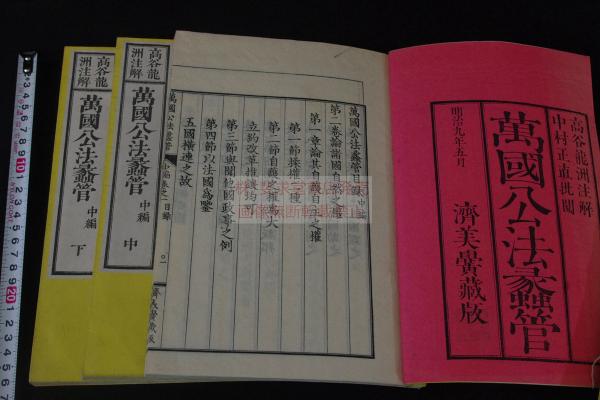 高谷龍洲注解
中村正直批閱
萬國公法蠡管
明治九年五月
濟美黌藏版
萬國公法蠡管目錄 中編
第二卷論諸國自然之權
第一章論其自護自主之權
第一節操權二種
第二節自護之權爲大
立約改革推讓均可
第三節與聞他國政事之例
第四節以法國爲鑒
五國橫連之故
萬國公法蠡管
高谷龍
洲注解
萬國公法蠡管 中編 中
高谷龍
洲注解
萬國公法蠡管 中編 下